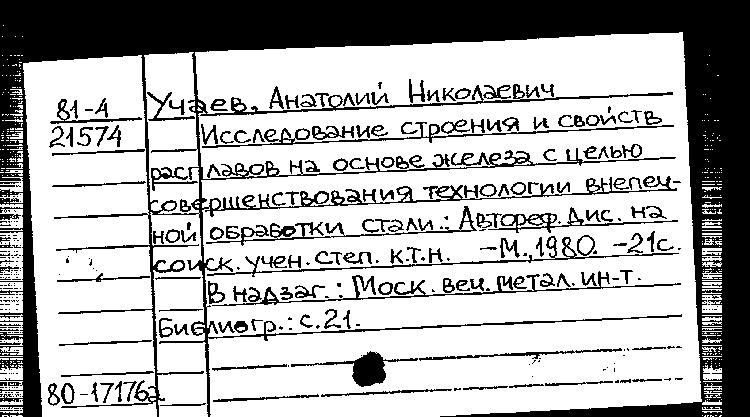 81-4 Учаев, Анатолий Николаевич
21574 Исследование строения и свойств
расплавов на основе железа с целью
совершенствования технологии внепеч-
ной обработки стали.: Автореф. дис. на
соиск. учен. степ. к.т.н. -М., 1980. -21с.
В надзаг.: Моск. веч. метал. ин-т.
Библиогр.: с.21.
80-17176а